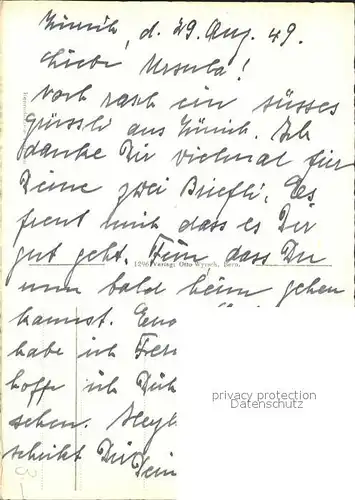 Zürich, d. 29. Aug. 49.
Liebe Ursula!
Noch rasch ein süsses
Grüssli aus Zürich. Ich
danke Dir vielmal für
Deine zwei Briefli. Es
freut mich dass es Dir
gut geht. Fein, dass Du
1296 Verlag: Otto Wyrsch, Bern.
nun bald heim gehen
kannst.
habe ich
hoffe ich Dich
sehen.
schickt Dir Dein
privacy protection
Datenschutz